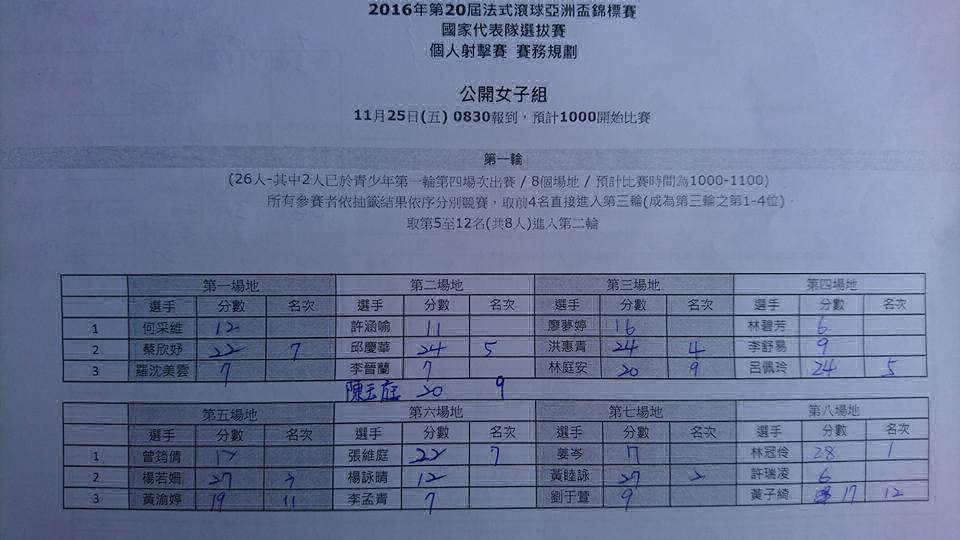 2016年第20屆法式滾球亞洲盃錦標賽
國家代表隊選拔賽
個人射擊賽 賽務規劃
公開女子組
11月25日(五) 0830報到，預計1000開始比賽
第一輪
(26人-其中2人已於青少年第一輪第四場次出賽 / 8個場地 / 預計比賽時間為1000-1100)
所有參賽者依抽籤結果依序分別競賽，取前4名直接進入第三輪(成為第三輪之第1-4位)，
取第5至12名(共8人)進入第二輪
第一場地 第二場地 第三場地 第四場地
選手 分數 名次 選手 分數 名次 選手 分數 名次 選手 分數 名次
1 何采維 12 許涵喻 11 廖夢婷 16 林碧芳 6
2 蔡欣妤 22 7 邱慶華 24 5 洪惠青 24 4 李舒易 9
3 羅沈美雲 7 李晉蘭 7 林庭安 20 9 呂佩玲 24 5
陳玉庭 20 9
第五場地 第六場地 第七場地 第八場地
選手 分數 名次 選手 分數 名次 選手 分數 名次 選手 分數 名次
1 曾筠倩 張維庭 22 7 姜岑 林冠伶 28 1
2 楊若姍 27 楊詠晴 12 黃睦詠 27 2 許瑞凌 6
3 黃渝婷 19 11 李孟青 7 劉于萱 9 黃子綺 17 12